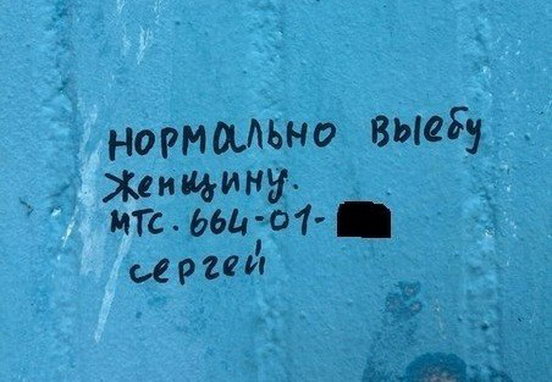 нормально выебу
женщину.
мтс. 664-01-
сергей